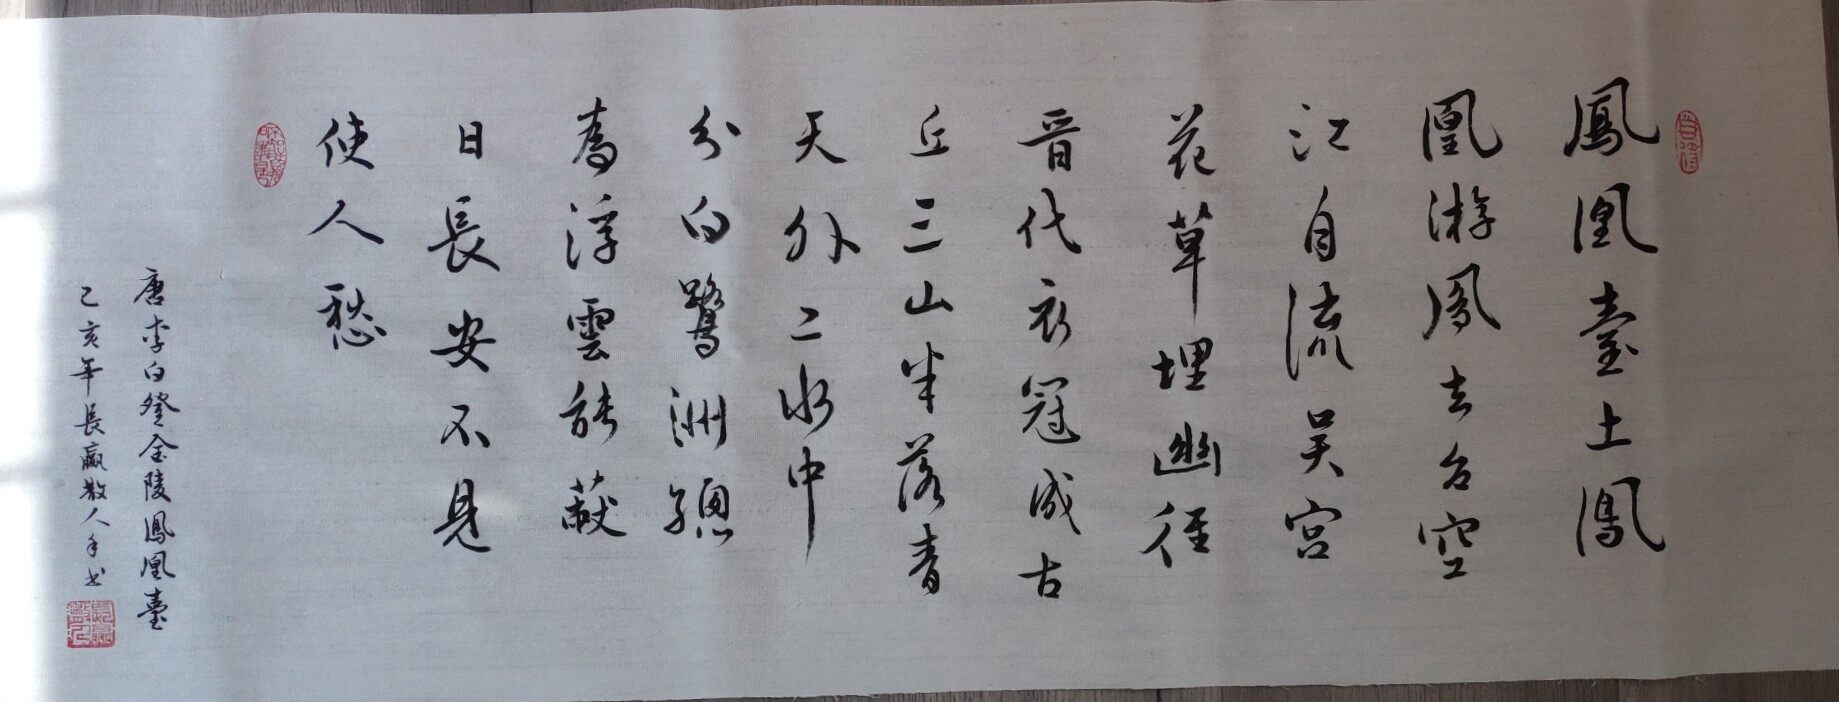 鳳凰臺上鳳
凰游鳳去台空
江自流吴宫
花草埋幽徑
晋代衣冠成古
丘三山半落青
天外二水中
分白鷺洲總
為浮雲能蔽
日長安不見
使人愁
唐李白登金陵鳳凰臺
己亥年長嬴散人手书